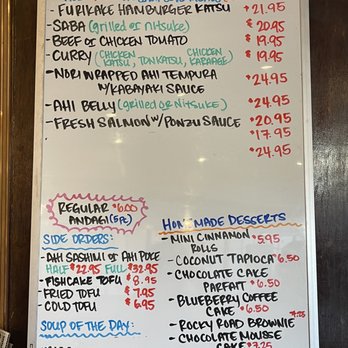 - FURIKAKE HAMBURGER KATSU $21.95
- SABA (grilled or nitsuke) $20.95
- BEEF or CHICKEN TOMATO $19.95
- CURRY (CHICKEN KATSU, TONKATSU, CHICKEN KARAAGE) $19.95
- NORI WRAPPED AHI TEMPURA
w/KABAYAKI SAUCE $24.95
- AHI BELLY (grilled or Nitsuke) $24.95
- FRESH SALMON w/PONZU SAUCE $20.95
$17.95
$24.95
REGULAR $6.00
ANDAGI (5pc)
SIDE ORDERS:
- AHI SASHIMI or AHI POKE
HALF $22.95 FULL $32.95
- FISHCAKE TOFU $8.95
- FRIED TOFU $7.95
- COLD TOFU $6.95
SOUP OF THE DAY:
HOMEMADE DESSERTS
- MINI CINNAMON $5.95
ROLLS
- COCONUT TAPIOCA $6.50
- CHOCOLATE CAKE
PARFAIT $6.50
- BLUEBERRY COFFEE
CAKE $6.50
- ROCKY ROAD BROWNIE
- CHOCOLATE MOUSSE
CAKE